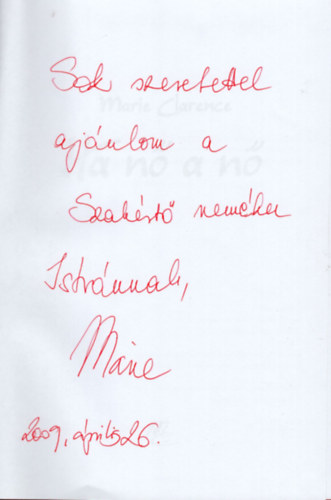 Sok szeretettel
Marie Clarence
ajánlom a
a nő
Szakértő
Istvánnak,
Marie
2009, április 26.